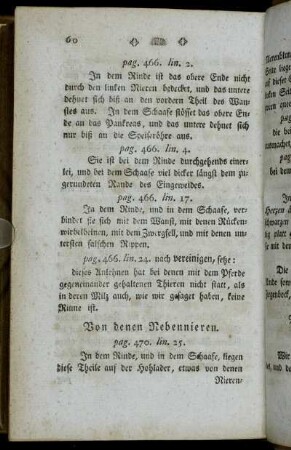 60
pag. 466. lin. 2.
In dem Rinde ist das obere Ende nicht
durch den linken Nieren bedecket, und das untere
dehnet sich biß an den vordern Theil des Wan-
stes aus. In dem Schaafe stösset das obere En-
de an das Pankreas, und das untere dehnet sich
nur biß an die Speiseröhre aus.
pag. 466. lin. 4.
Sie ist bei dem Rinde durchgehends einer-
lei, und bei dem Schaafe viel dicker längst dem zu-
gerundeten Rande des Eingeweides.
pag. 466. lin. 17.
In dem Rinde, und in dem Schaafe, ver-
bindet sie sich mit dem Wanst, mit denen Rücken-
wirbelbeinen, mit dem Zwergfell, und mit denen un-
tersten falschen Rippen.
pag. 466. lin. 24. nach vereinigen, setze:
dieses Anlehnen hat bei denen mit dem Pferde
gegeneinander gehaltenen Thieren nicht statt, als
in deren Milz auch, wie wir gesaget haben, keine
Rinne ist.
Von denen Nebennieren.
pag. 470. lin. 25.
In dem Rinde, und in dem Schaafe, liegen
diese Theile auf der Hohlader, etwas von denen
Nieren-